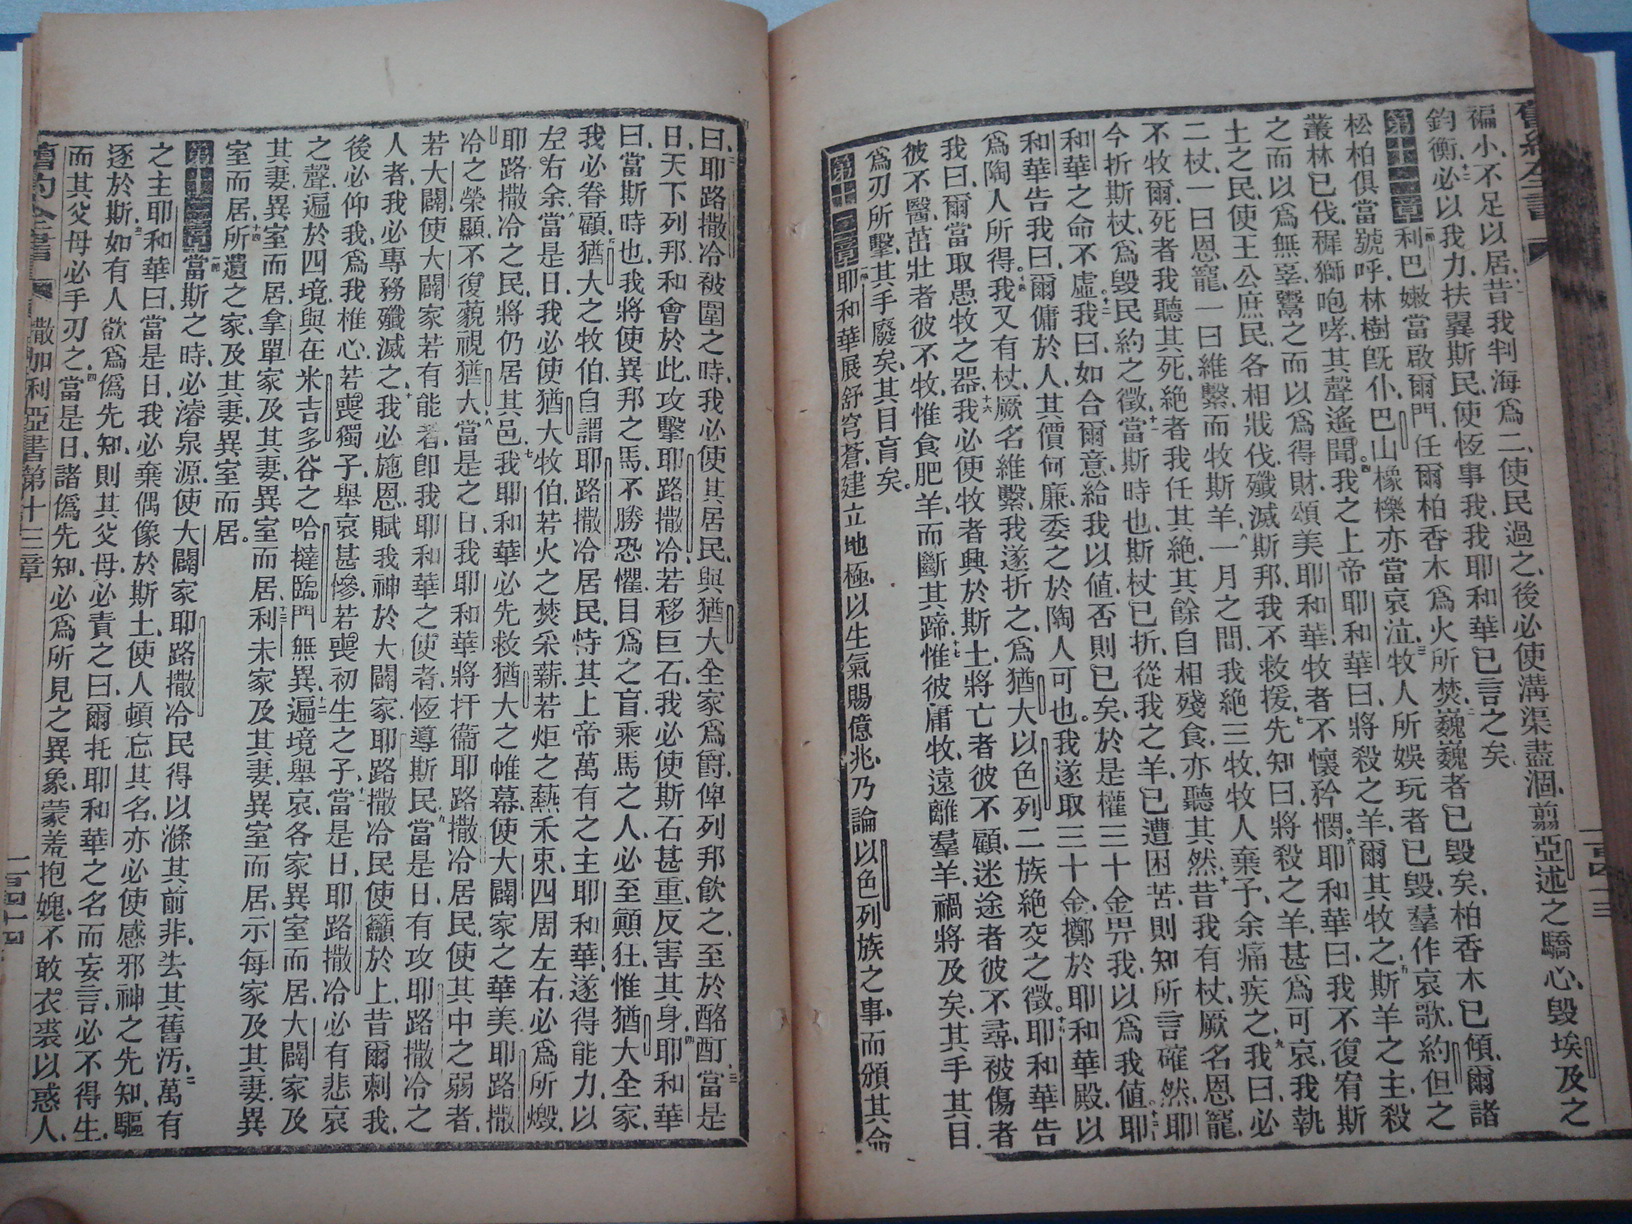 舊約全書
褊小、不足以居、昔我判海爲二、使民過之、後必使溝渠盡涸、翦亞述之驕心、毀埃及之
鈞衡、必以我力、扶翼斯民、使恆事我、我耶和華已言之矣、
第十一章 利巴嫩當啟爾門、任爾柏香木爲火所焚、巍巍者已毀矣、柏香木已傾、爾諸
松柏俱當號呼、林樹旣仆、巴山橡櫟亦當哀泣、牧人所娛玩者已毀、羣作哀歌、約但之
叢林已伐、穉獅咆哮、其聲遙聞、我之上帝耶和華曰、將殺之羊、爾其牧之、斯羊之主殺
之而以爲無辜、鬻之而以爲得財、頌美耶和華、牧者不懷矜憫、耶和華曰、我不復宥斯
土之民、使王公庶民、各相戕伐、殲滅斯邦、我不救援、先知曰、將殺之羊、甚爲可哀、我執
二杖、一曰恩寵、一曰維繫、而牧斯羊、一月之間、我絕三牧、牧人棄予、余痛疾之、我曰、必
不牧爾、死者我聽其死、絕者我任其絕、其餘自相殘食、亦聽其然、昔我有杖、厥名恩寵、
今折斯杖、爲毀民約之徵、當斯時也、斯杖已折、從我之羊、已遭困苦、則知所言確然、耶
和華之命不虛、我曰、如合爾意、給我以值、否則已矣、於是權三十金畀我、以爲我值、耶
和華告我曰、爾傭於人、其價何廉、委之於陶人可也、我遂取三十金、擲於耶和華殿、以
爲陶人所得、我又有杖、厥名維繫、我遂折之、爲猶大以色列二族絕交之徵、耶和華告
我曰、爾當取愚牧之器、我必使牧者興於斯土、將亡者彼不顧、迷途者彼不尋、被傷者
彼不醫、茁壯者彼不牧、惟食肥羊、而斷其蹄、惟彼庸牧、遠離羣羊、禍將及矣、其手其目
爲刃所擊、其手廢矣、其目盲矣。
第十二章 耶和華展舒穹蒼、建立地極、以生氣賜億兆、乃論以色列族之事、而頒其命
曰、耶路撒冷被圍之時、我必使其居民、與猶大全家爲爵、俾列邦飲之、至於酩酊、當是
日、天下列邦和會於此、攻擊耶路撒冷、若移巨石、我必使斯石甚重、反害其身、耶和華
曰、當斯時也、我將使異邦之馬、不勝恐懼、目爲之盲、乘馬之人、必至顛狂、惟猶大全家、
我必眷顧、猶大之牧伯、自謂耶路撒冷居民、恃其上帝萬有之主耶和華、遂得能力、以
左右余、當是日、我必使猶大牧伯、若火之焚采薪、若炬之爇禾束、四周左右、必爲所燬、
耶路撒冷之民、將仍居其邑、我耶和華、必先救猶大之帷幕、使大闢家之華美、耶路撒
冷之榮顯、不復藐視猶大、當是之日、我耶和華將扞衞耶路撒冷居民、使其中之弱者、
若大闢、使大闢家若有能者、卽我耶和華之使者、恆導斯民、當是日、有攻耶路撒冷之
人者、我必專務殲滅之、我必施恩、賦我神於大闢家、耶路撒冷民、使籲於上、昔爾刺我、
後必仰我、爲我椎心、若喪獨子、舉哀甚慘、若喪初生之子、當是日、耶路撒冷必有悲哀
之聲、遍於四境、與在米吉多谷之哈撻臨門無異、遍境舉哀、各家異室而居、大闢家及
其妻、異室而居、拿單家及其妻、異室而居、利未家及其妻、異室而居、示每家及其妻異
室而居、所遺之家及其妻、異室而居。
第十三章 當斯之時、必濬泉源、使大闢家、耶路撒冷民、得以滌其前非、去其舊汚、萬有
之主耶和華曰、當是日、我必棄偶像於斯土、使人頓忘其名、亦必使感邪神之先知、驅
逐於斯、如有人欲爲僞先知、則其父母必責之曰、爾托耶和華之名而妄言、必不得生、
而其父母必手刃之、當是日、諸僞先知、必爲所見之異象、蒙羞抱媿、不敢衣裘以惑人、
舊約全書 撒加利亞書第十三章